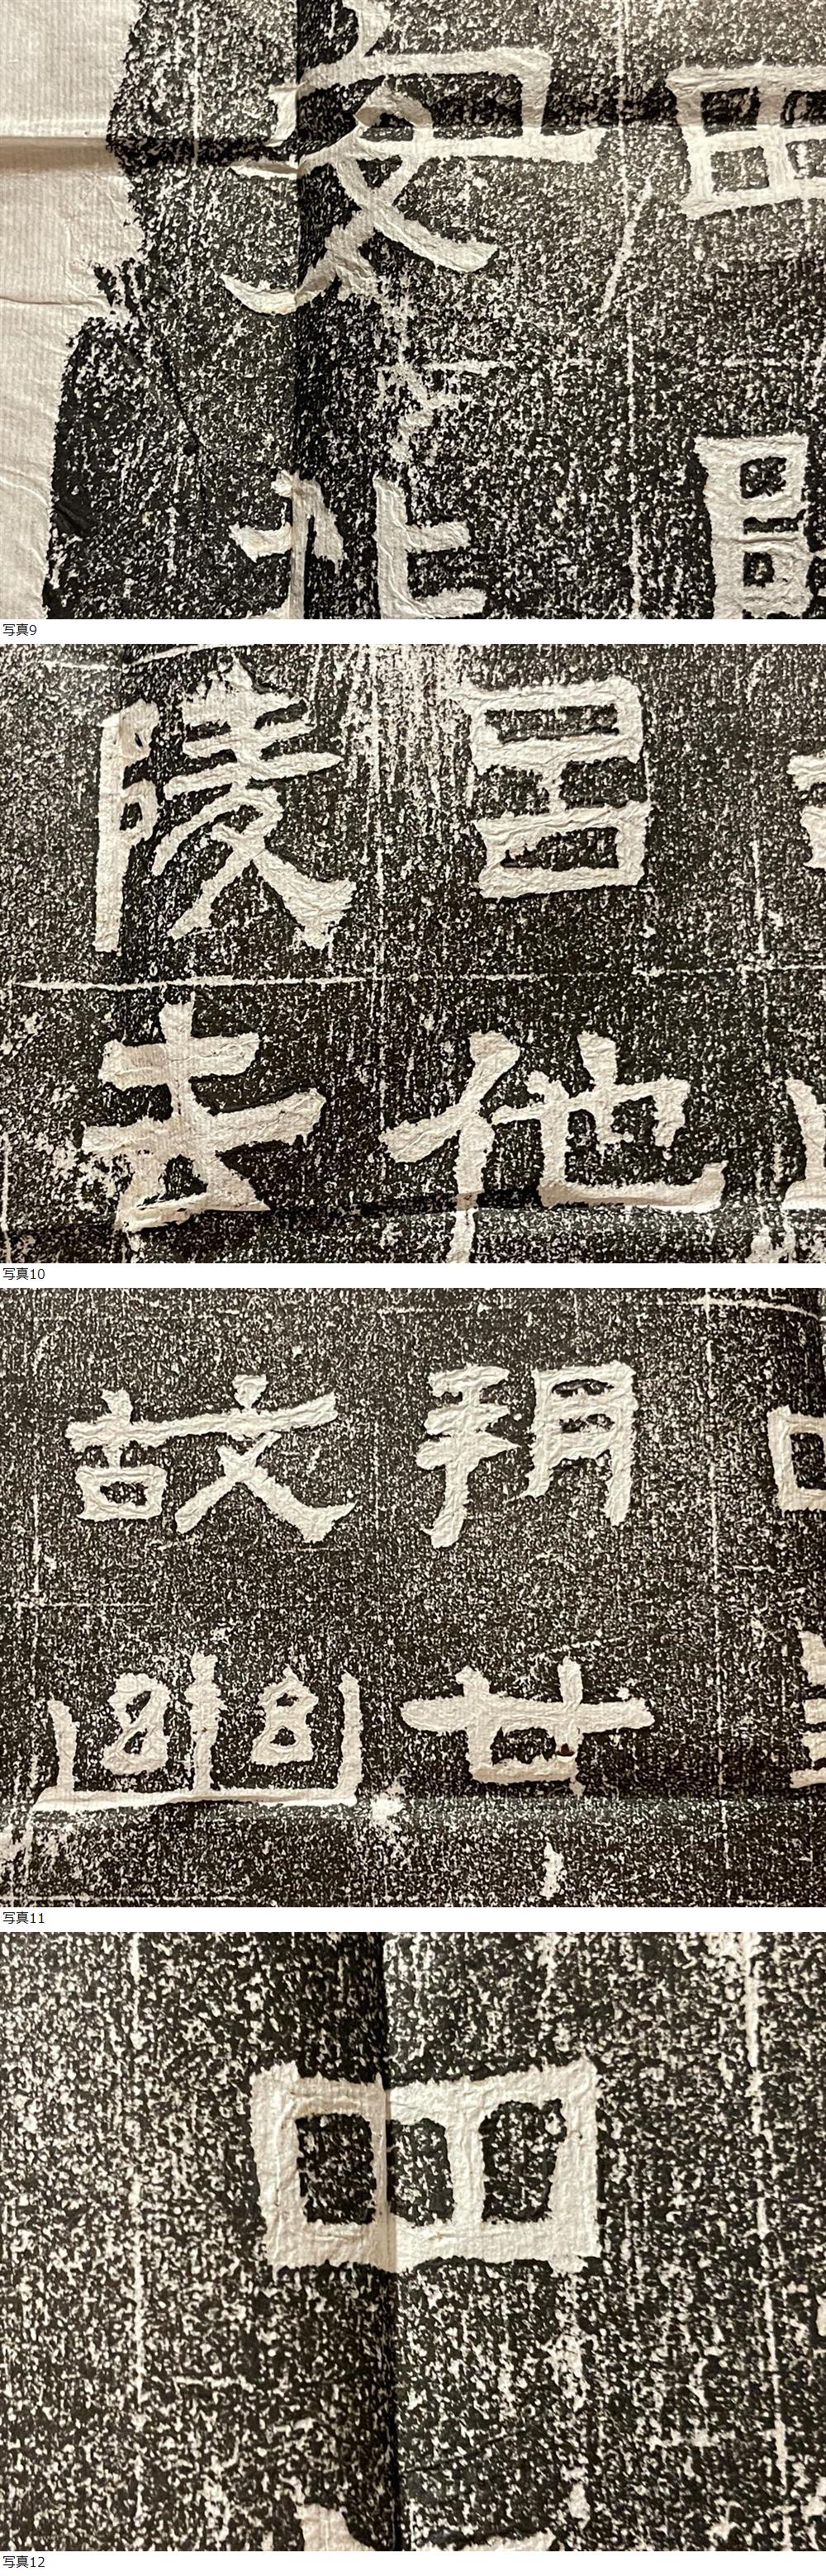 安北
写真9
呂他
陵去
写真10
朔廿
故幽
写真11
四
写真12